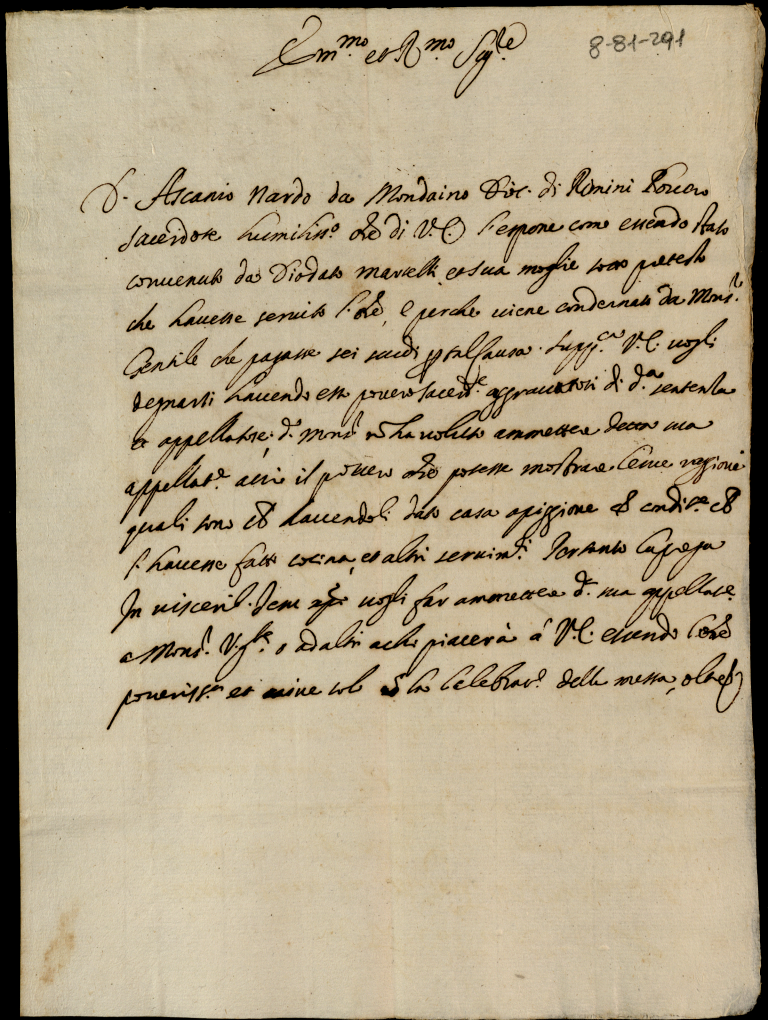 Em.mo et R.mo Sig.re
8-81-291
D. Ascanio Nardo da Mondaino Dioc. di Rimini Povero
sacerdote humiliss.o ore di V.E. l'espone come essendo stato
convenuto da Diodato Martelli et sua moglie sotto pretesto
che havesse servito l'ore, e perche viene condennato da Mons.r
Gentile che pagasse sei scudi p tal causa. supp.ca V.E. vogli
degnarsi havendo esso povero sacerd.e di d.a sentenza
et appellatose, d.o Mons.r nō ha voluto ammettere detta sua
appellat.e acciò il povero ore potesse mostrare le sue raggioni
quali sono ch havendoli dato casa apiggione cō condit.e ch
l'havesse fatto cocina, et altri servim.ti Pertanto la prega
In viscerib. vogli far ammettere d.a sua appellat.e
a Mons.r o ad altri a chi piacerà à V.E. essendo l'ore
poveriss.o et vive sol p la celebrat.e della messa, oltre